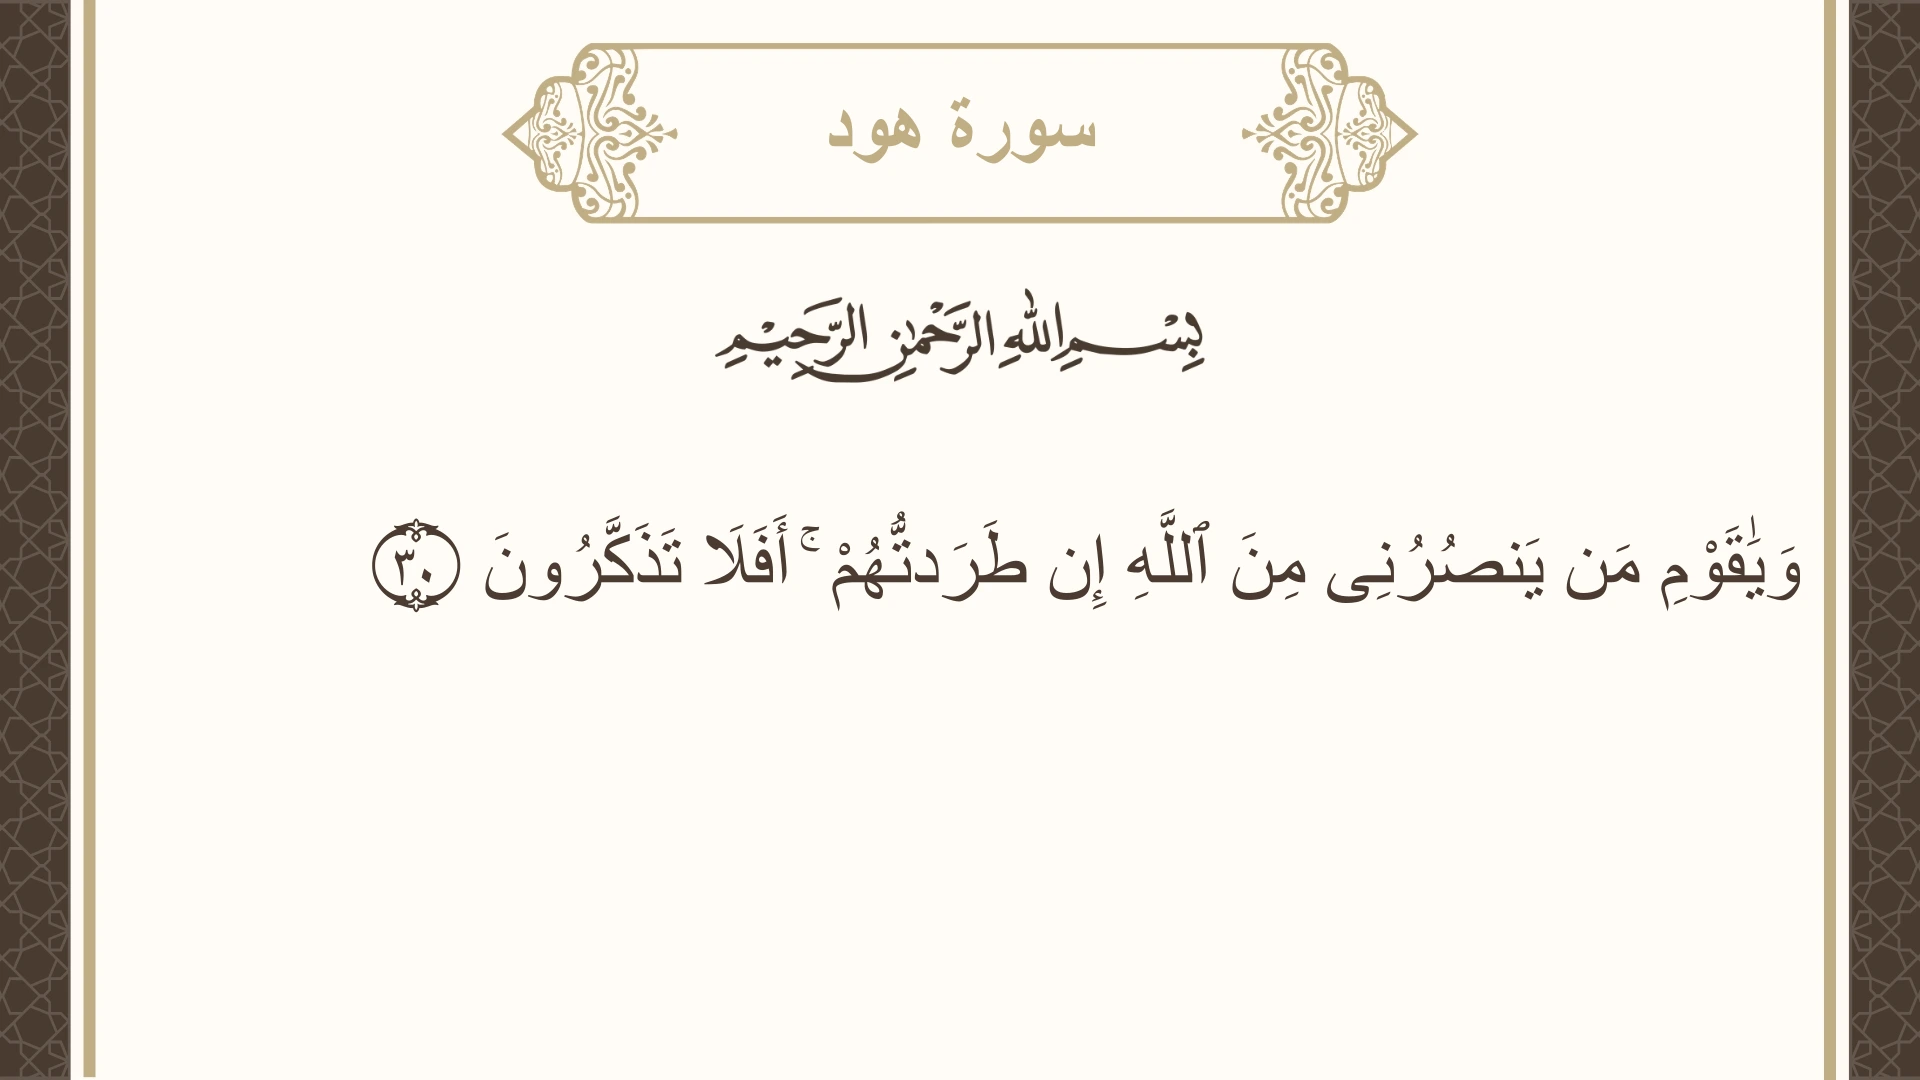 سورة هود
بِسْمِ اللهِ الرَّحْمٰنِ الرَّحِيْمِ
وَيَٰقَوْمِ مَن يَنصُرُنِى مِنَ ٱللَّهِ إِن طَرَدتُّهُمْ ۚ أَفَلَا تَذَكَّرُونَ ٣٠